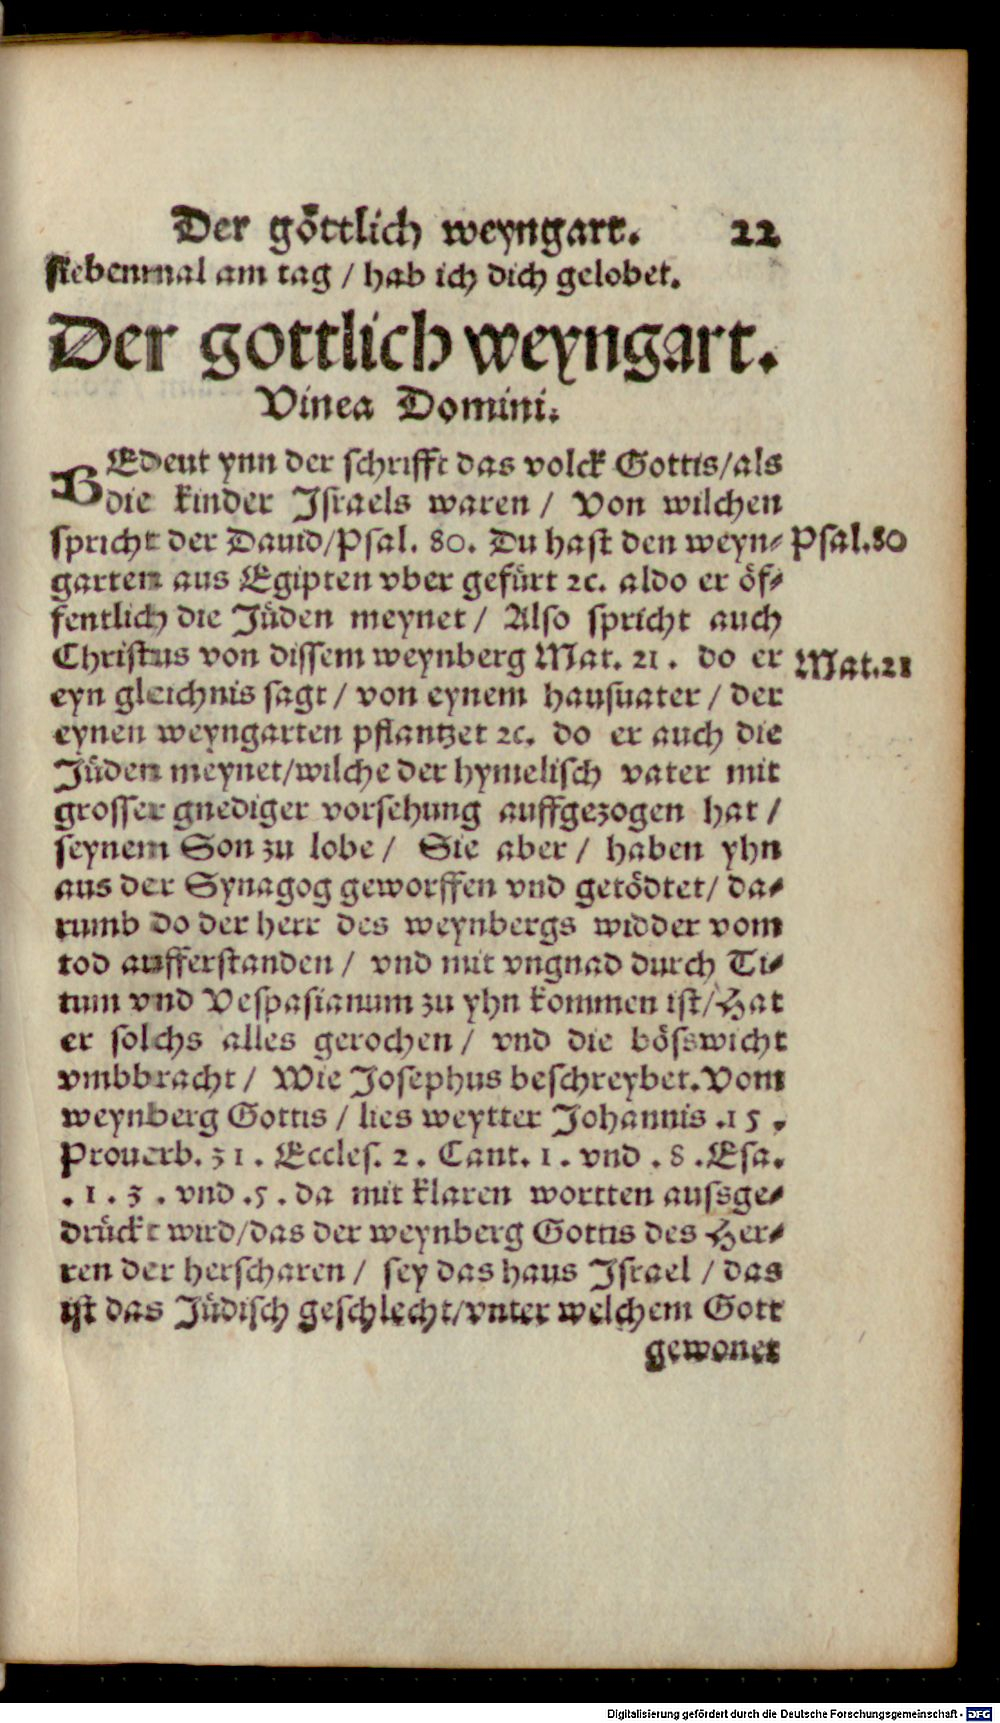 Der göttlich weyngart. 22
siebenmal am tag / hab ich dich gelobet.
Der gottlich weyngart.
Vinea Domini.
BEdeut ynn der schrifft das volck Gottis/als
die kinder Israels waren / Von wilchen
spricht der Dauid/Psal. 80. Du hast den weyn-
Psal.80
garten aus Egipten vber gefürt ꝛc. aldo er öf-
fentlich die Jüden meynet / Also spricht auch
Christus von dissem weynberg Mat. 21. do er
Mat.21
eyn gleichnis sagt / von eynem hausuater / der
eynen weyngarten pflantzet ꝛc. do er auch die
Jüden meynet/wilche der hymelisch vater mit
grosser gnediger vorsehung auffgezogen hat /
seynem Son zu lobe / Sie aber / haben yhn
aus der Synagog geworffen vnd getödtet/ da-
rumb do der herr des weynbergs widder vom
tod aufferstanden / vnd mit vngnad durch Ti-
tum vnd Vespasianum zu yhn kommen ist/Hat
er solchs alles gerochen / vnd die bösswicht
vmbbracht / Wie Josephus beschreybet.Vom
weynberg Gottis / lies weytter Johannis .15.
Prouerb. 31. Eccles. 2. Cant. 1. vnd .8.Esa.
.1.3. vnd .5. da mit klaren wortten aussge-
drückt wird/das der weynberg Gottis des Her-
ren der herscharen / sey das haus Israel / das
ist das Jüdisch geschlecht/vnter welchem Gott
gewonet
Digitalisierung gefördert durch die Deutsche Forschungsgemeinschaft - DFG